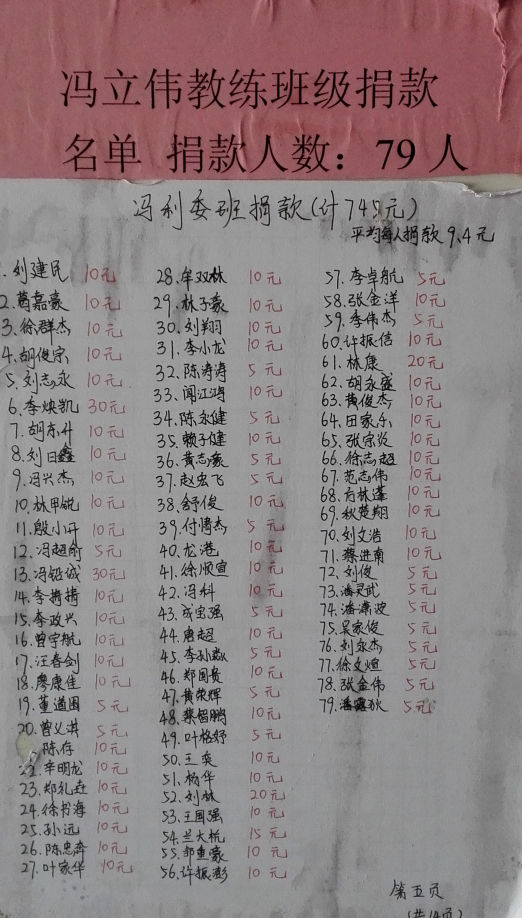 冯立伟教练班级捐款
名单 捐款人数：79人
冯利委班捐款(计745元)
平均每人捐款 9.4元
1.刘建民 10元
2.葛嘉豪 10元
3.徐群杰 10元
4.胡俊宗 10元
5.刘志永 10元
6.李焕凯 30元
7.胡东升 10元
8.刘日鑫 10元
9.冯兴杰 10元
10.林甲锐 10元
11.殷小丹 10元
12.冯超前 5元
13.冯铝诚 30元
14.李搏搏 10元
15.李政兴 10元
16.曾宇航 10元
17.汪春剑 10元
18.廖康佳 10元
19.董道国 5元
20.曾义洪 5元
陈存 10元
22.辛明龙 10元
23.郑礼垚 10元
24.徐书海 10元
25.孙远 10元
26.陈忠奔 10元
27.叶家华 10元
28.牟双林 10元
29.林子豪 10元
30.刘翔 10元
31.李小龙 10元
32.陈涛涛 5元
33.闻江鸿 10元
34.陈永健 5元
35.赖子健 10元
36.黄志豪 5元
37.赵宏飞 5元
38.舒俊 10元
39.付博杰 5元
40.龙港 10元
41.徐顺宣 10元
42.冯科 10元
43.成宝强 5元
44.唐超 10元
45.李孙淼 5元
46.郑国贵 10元
47.黄荣辉 5元
48.蔡智鹏 10元
49.叶格妤 5元
50.王奕 10元
51.杨华 10元
52.刘林 20元
53.王国强 10元
54.兰大杭 15元
55.邹重豪 10元
56.许振澎 10元
57.李卓航 5元
58.张金洋 10元
59.李伟杰 5元
60.许振信 10元
61.林康 20元
62.胡永盛 10元
63.黄俊杰 10元
64.田家乐 10元
65.张宗炎 10元
66.徐志超 10元
67.范志伟 10元
68.肖林蓬 10元
69.秋楚翔 10元
70.刘文浩 10元
71.蔡进南 10元
72.刘俊 5元
73.潘灵武 5元
74.潘潇波 5元
75.吴家俊 5元
76.刘永杰 5元
77.徐文烜 5元
78.张金伟 5元
79.潘露狄 5元
第五页
(共14页)